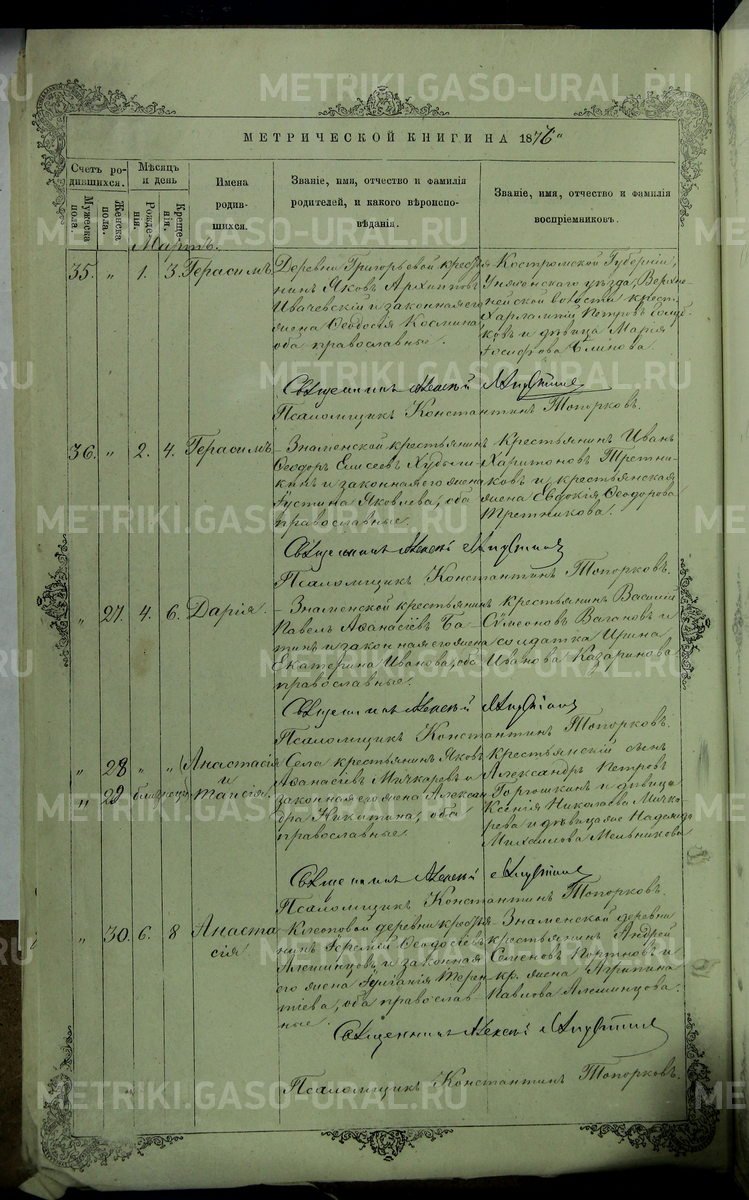 МЕТРИЧЕСКОЙ КНИГИ НА 1876"
Счетъ родившихся.
Мужеска пола.
Женска пола.
Мѣсяцъ и день
Рожденія.
Крещенія.
Имена родившихся.
Званіе, имя, отчество и фамилія родителей, и какого вѣроисповѣданія.
Званіе, имя, отчество и фамилія воспріемниковъ.
Мартъ.
35. " 1. 3. Герасимъ
Деревни Григорьевой крестья
нинъ Яковъ Архиповъ
Ивачевскій и законная его
жена Ѳеодосія Космина,
оба православные.
Костромской Губерніи,
уѣзда,
волости крест.
Петровъ
ковъ и дѣвица Марія
Блинова.
Священникъ Алексій
Псаломщикъ Константинъ Топорковъ.
36. " 2. 4. Герасимъ
Знаменской крестьянинъ
Ѳеодоръ Елисеевъ
кинъ и законная его жена
Іустина Яковлева, оба
православные.
Крестьянинъ Иванъ
Харитоновъ Третни
ковъ и крестьянская
жена Евдокія Ѳеодорова
Третникова.
Священникъ Алексій
Псаломщикъ Константинъ Топорковъ.
" 27. 4. 6. Дарія.
Знаменской крестьянинъ
Павелъ Аѳанасіевъ Ба
тинъ и законная его жена
Екатерина Иванова, оба
православные.
крестьянинъ Василій
Сѵмеоновъ Вагановъ и
солдатка Ирина
Иванова Казаринова
Священникъ Алексій
Псаломщикъ Константинъ Топорковъ.
" 28 " " Анастасія
и
" 29 близнецы Таисія.
Села крестьянинъ Яковъ
Аѳанасіевъ Мичкаревъ и
законная его жена Алексан
дра Никитина, оба
православные
Крестьянскій сынъ
Александръ Петровъ
Горошкинъ и дѣвица
Ксенія Николаева Мичка
рева и дѣвица же Надежда
Михаилова Мельникова
Священникъ Алексій
Псаломщикъ Константинъ Топорковъ.
" 30. 6. 8 Анаста
сія
деревни крестья
нинъ Іеремій Ѳеодосіевъ
Алешинцовъ и законная
его жена Терен
тіева, оба православ
ные.
Знаменской деревни
крестьянинъ Андрей
Семеновъ и
кр. жена Агрипина
Павлова Алешинцова.
Священникъ Алексій
Псаломщикъ Константинъ Топорковъ.
METRIKI.GASO-URAL.RU